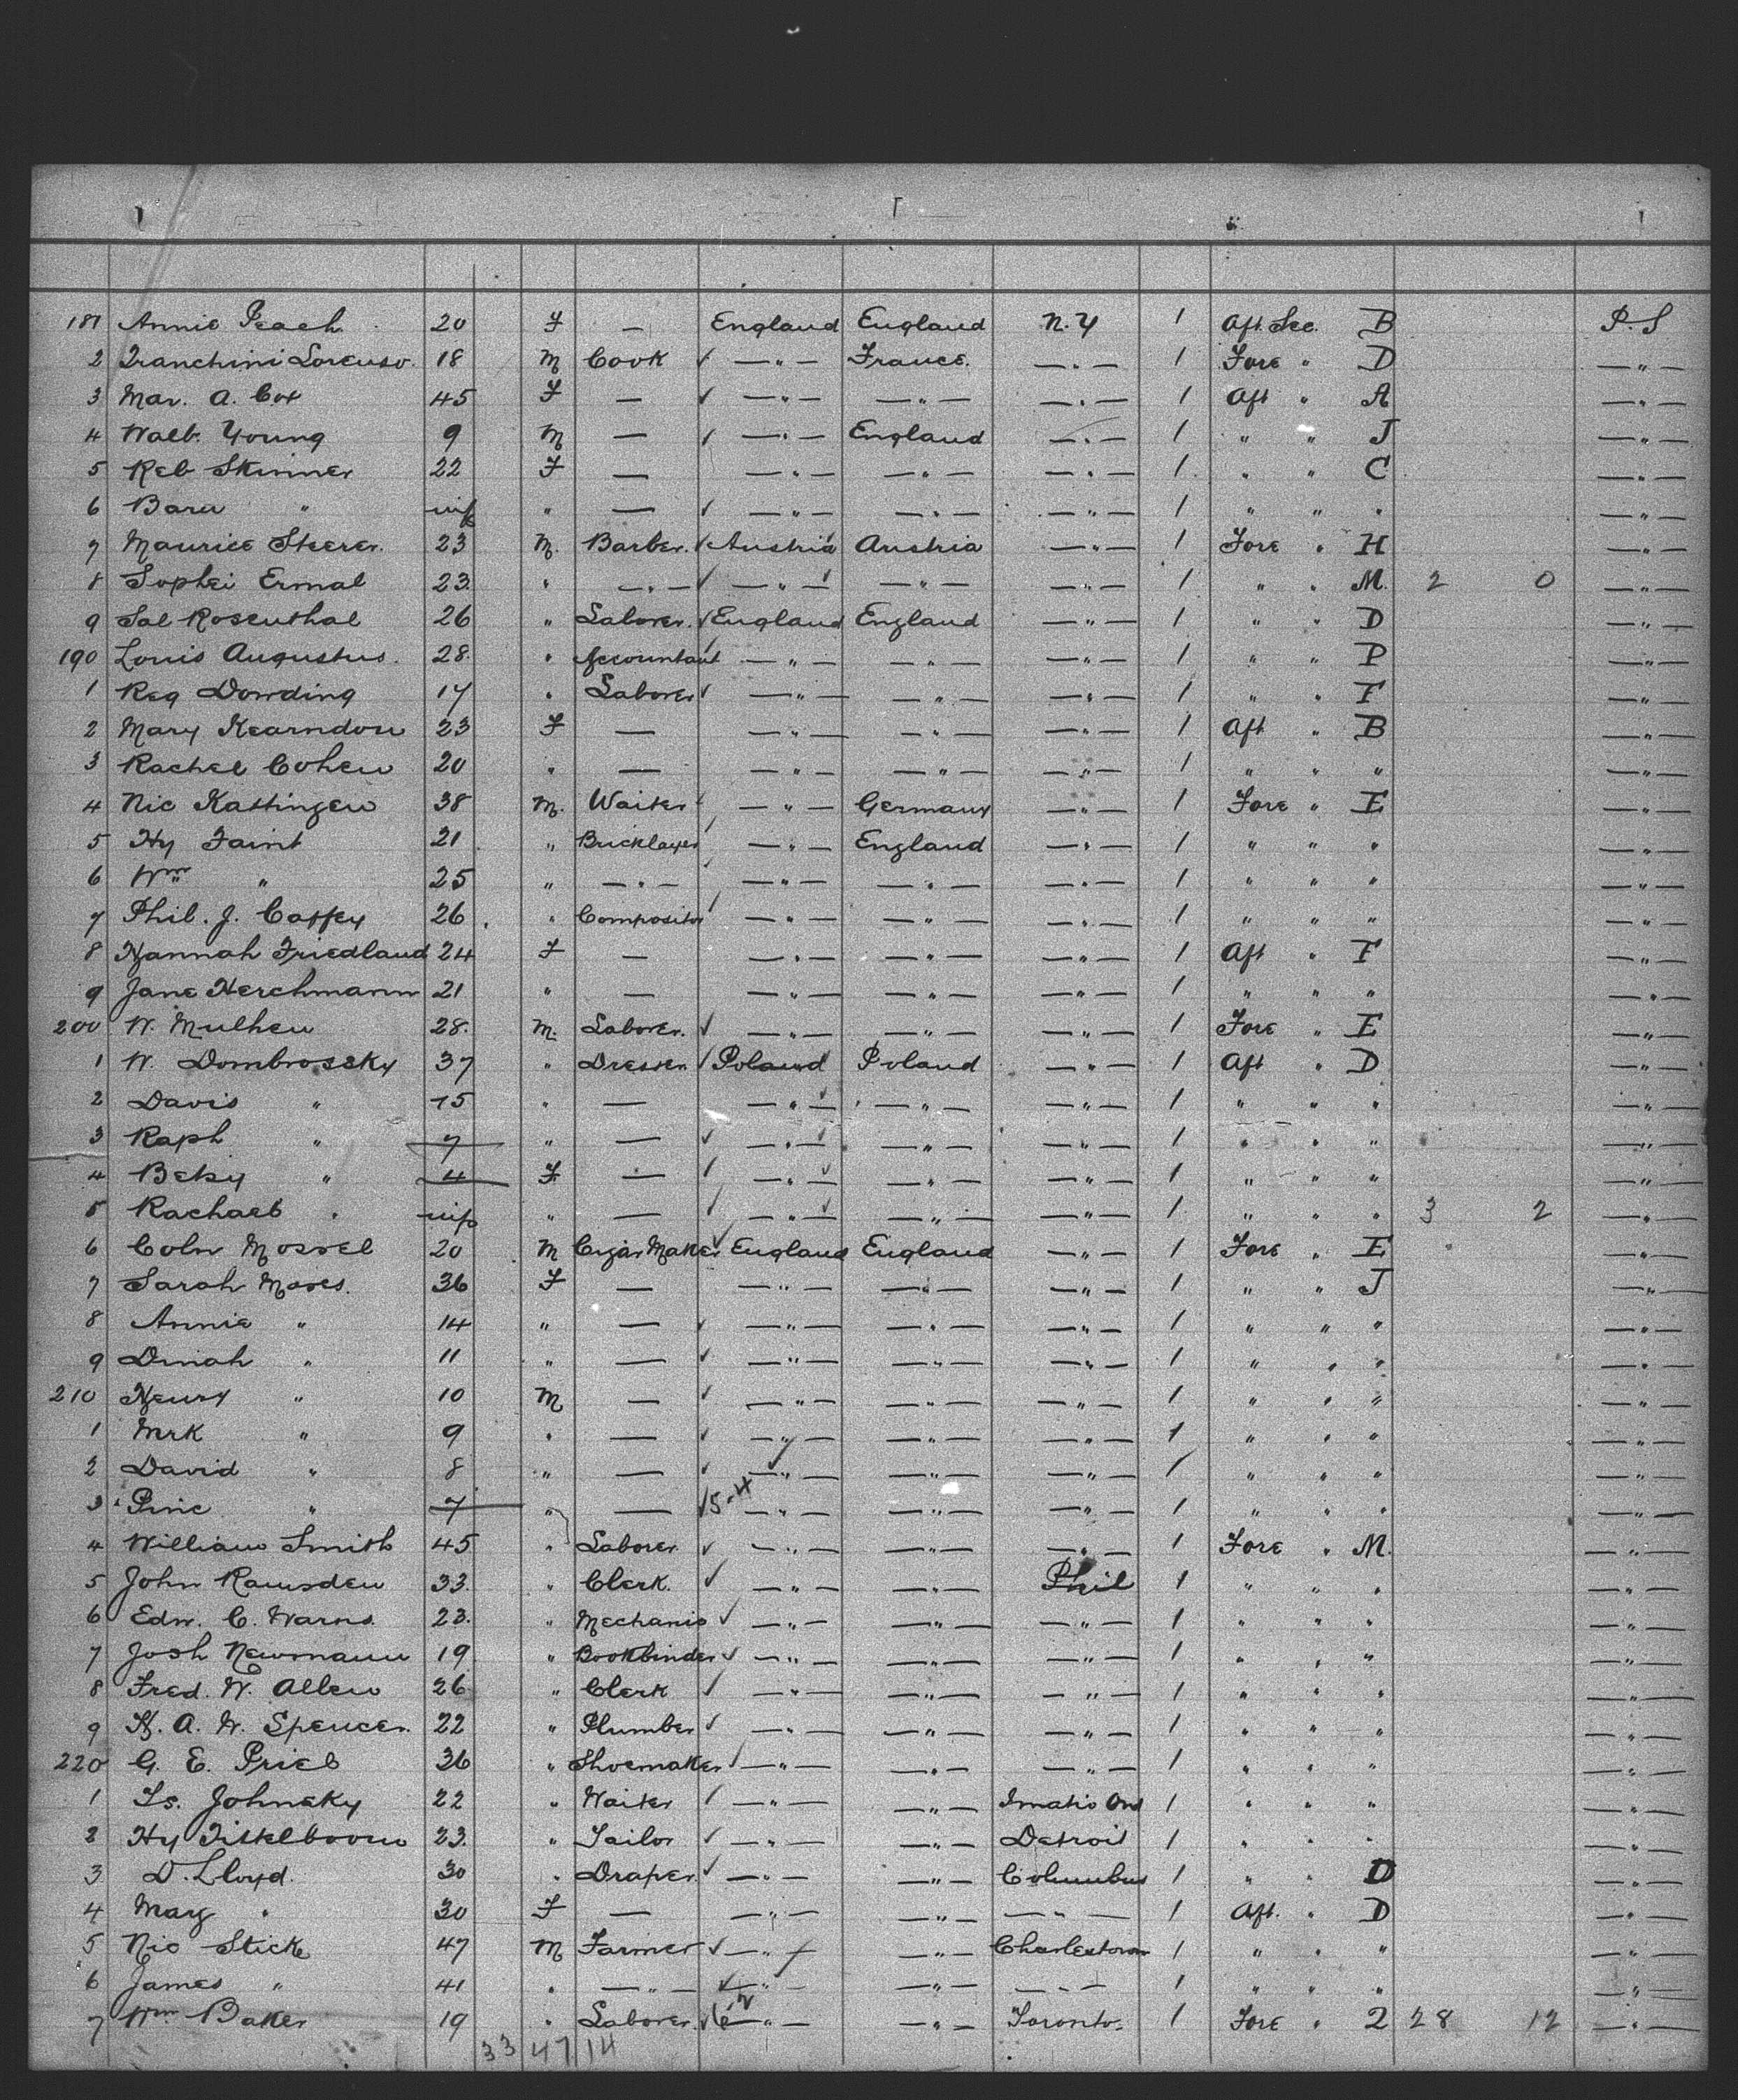 181 Annie Peach 20 F — England England N.Y 1 Aft Sec. B P.S
2 Tranchini Lorenso. 18 M Cook ✓ —"— France. —"— 1 Fore " D —"—
3 Mar. A. Cox 45 F — ✓ —"— —"— —"— 1 Aft " A —"—
4 Walt. Young 9 M — ✓ —"— England —"— 1 " " J —"—
5 Reb Skinner 22 F — —"— —"— —"— 1 " " C —"—
6 Barn " inf " — ✓ —"— —"— —"— 1 " " " —"—
7 Maurice Sheerer. 23 M. Barber. ✓ Austria Austria —"— 1 Fore " H —"—
8 Sophei Ermal 23. " —"— ✓ —"— —"— —"— 1 " " M. 2 0 —"—
9 Sal Rosenthal 26 " Laborer. ✓ England England —"— 1 " " D —"—
190 Louis Augustus. 28. " Accountant —"— —"— —"— 1 " " P —"—
1 Reg Dowding 17 " Laborer ✓ —"— —"— —"— 1 " " F —"—
2 Mary Kearndon 23 F — —"— —"— —"— 1 Aft " B —"—
3 Rachel Cohen 20 " — —"— —"— —"— 1 " " " —"—
4 Nic Kattingen 38 M. Waiter —"— Germany —"— 1 Fore " E —"—
5 Hy Faint 21 " Bricklayer —"— England —"— 1 " " " —"—
6 Wm " 25 " —"— —"— —"— —"— 1 " " " —"—
7 Phil. J. Caffey 26 " Compositor —"— —"— —"— 1 " " " —"—
8 Hannah Friedland 24 F — —"— —"— —"— 1 Aft " F —"—
9 Jane Herchmann 21 " — —"— —"— —"— 1 " " " —"—
200 W. Mulhen 28. M. Laborer. ✓ —"— —"— —"— 1 Fore " E —"—
1 W. Dombrossky 37 " Dresser ✓ Poland Poland —"— 1 Aft " D —"—
2 Davis " 15 " — —"— —"— —"— 1 " " " —"—
3 Raph " 7 " — ✓ —"— —"— —"— 1 " " " —"—
4 Beksy " 4 F. — ✓ —"— —"— —"— 1 " " " —"—
5 Rachaeb " inf " — ✓ —"— —"— —"— 1 " " " 3 2 —"—
6 Coln Mossel 20 M Cigar Maker ✓ England England —"— 1 Fore " E —"—
7 Sarah Moses. 36 F — —"— —"— —"— 1 " " J —"—
8 Annie " 14 " — ✓ —"— —"— —"— 1 " " " —"—
9 Dinah " 11 " — ✓ —"— —"— —"— 1 " " " —"—
210 Henry " 10 M — ✓ —"— —"— —"— 1 " " " —"—
1 Mrk " 9 " — ✓ —"— —"— —"— 1 " " " —"—
2 David " 8 " — ✓ —"— —"— —"— 1 " " " —"—
3 Pine " 7 " — ✓ 5-4 —"— —"— —"— 1 " " " —"—
4 William Smith 45 " Laborer ✓ —"— —"— —"— 1 Fore " M. —"—
5 John Ramsden 33. " Clerk. ✓ —"— —"— Phil 1 " " " —"—
6 Edw. C. Warns. 23. " Mechanic ✓ —"— —"— —"— 1 " " " —"—
7 Josh Newmann 19 " Bookbinder ✓ —"— —"— —"— 1 " " " —"—
8 Fred. W. Allen 26 " Clerk ✓ —"— —"— —"— 1 " " " —"—
9 H. A. W. Spencer. 22 " Plumber ✓ —"— —"— —"— 1 " " " —"—
220 G. E. Prieb 36 " Shoemaker ✓ —"— —"— —"— 1 " " " —"—
1 Is. Johnsky 22 " Waiter ✓ —"— —"— Ont 1 " " " —"—
2 Hy Titelboom 23. " Tailor ✓ —"— —"— Detroit 1 " " " —"—
3 D. Lloyd. 30 " Draper ✓ —"— —"— Columbus 1 " " D —"—
4 Mary " 30 F — —"— —"— —"— 1 Aft. " D —"—
5 Nic Stick 47 M Farmer ✓ —"— —"— Charlestown 1 " " " —"—
6 James " 41 " —"— ✓ —"— —"— —"— 1 " " " —"—
7 Wm Baker 19 " Laborer. ✓ —"— —"— Toronto. 1 Fore " 2 28 12 —"—
33 47 14